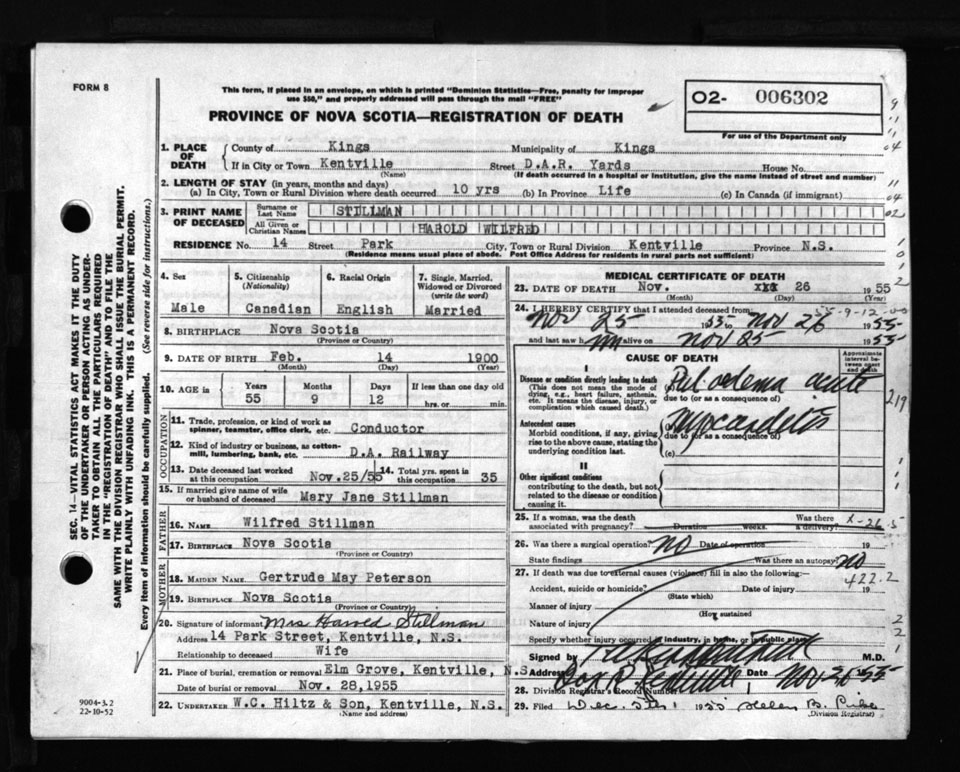 FORM 8
This form, if placed in an envelope, on which is printed "Dominion Statistics—Free, penalty for improper
use $50," and properly addressed will pass through the mail "FREE"
PROVINCE OF NOVA SCOTIA—REGISTRATION OF DEATH
O2- 006302
For use of the Department only
1. PLACE OF DEATH County of Kings Municipality of Kings
If in City or Town Kentville Street D.A.R. Yards House No.
(Name) (If death occurred in a hospital or institution, give the name instead of street and number)
2. LENGTH OF STAY (in years, months and days)
(a) In City, Town or Rural Division where death occurred 10 yrs (b) In Province Life (c) In Canada (if immigrant)
3. PRINT NAME OF DECEASED Surname or Last Name STILLMAN
All Given or Christian Names HAROLD WILFRED
RESIDENCE No. 14 Street Park City, Town or Rural Division Kentville Province N.S.
(Residence means usual place of abode. Post Office Address for residents in rural parts not sufficient)
4. Sex Male
5. Citizenship (Nationality) Canadian
6. Racial Origin English
7. Single, Married, Widowed or Divorced (write the word) Married
8. BIRTHPLACE Nova Scotia
(Province or Country)
9. DATE OF BIRTH Feb. 14 1900
(Month) (Day) (Year)
10. AGE in Years Months Days If less than one day old
55 9 12 hrs. or min.
OCCUPATION
11. Trade, profession, or kind of work as
spinner, teamster, office clerk, etc. Conductor
12. Kind of industry or business, as cotten-
mill, lumbering, bank, etc. D.A. Railway
13. Date deceased last worked at this occupation Nov.25/55 14. Total yrs. spent in this occupation 35
15. If married give name of wife
or husband of deceased Mary Jane Stillman
FATHER
16. NAME Wilfred Stillman
17. BIRTHPLACE Nova Scotia
(Province or Country)
MOTHER
18. MAIDEN NAME Gertrude May Peterson
19. BIRTHPLACE Nova Scotia
(Province or Country)
20. Signature of informant Mrs Harold Stillman
Address 14 Park Street, Kentville, N.S.
Relationship to deceased Wife
21. Place of burial, cremation or removal Elm Grove, Kentville, N.S
Date of burial or removal Nov. 28,1955
22. UNDERTAKER W.C. Hiltz & Son, Kentville, N.S.
(Name and address)
MEDICAL CERTIFICATE OF DEATH
23. DATE OF DEATH Nov. 26 1955
(Month) (Day) (Year)
24. I HEREBY CERTIFY that I attended deceased from:
Nov 25 1955 to Nov 26 1955
and last saw him alive on Nov 25 1955
CAUSE OF DEATH
Approximate interval between onset and death
I
Disease or condition directly leading to death
(This does not mean the mode of
dying, e.g., heart failure, asthenia,
etc. It means the disease, injury, or
complication which caused death.)
Pul. oedema acute
due to (or as a consequence of)
Antecedent causes
Morbid conditions, if any, giving
rise to the above cause, stating the
underlying condition last.
Myocarditis
due to (or as a consequence of)
(c)
II
Other significant conditions
contributing to the death, but not
related to the disease or condition
causing it.
219
25. If a woman, was the death
associated with pregnancy? Duration weeks. Was there a delivery?
X-26.5
26. Was there a surgical operation? no Date of operation 19
State findings Was there an autopsy? no
27. If death was due to external causes (violence) fill in also the following:—
422.2
Accident, suicide or homicide? Date of injury 19
(State which)
Manner of injury
(How sustained
Nature of injury
Specify whether injury occurred in industry, in home, or in public place
Signed by M.D.
Address Box Kentville Date Nov 26 55
28. Division Registrar's Record Number
29. Filed Dec. 5th 1955 Helen B.
(Division Registrar)
SEC. 14—VITAL STATISTICS ACT MAKES IT THE DUTY
OF THE UNDERTAKER OR PERSON ACTING AS UNDER-
TAKER TO OBTAIN ALL THE PARTICULARS REQUIRED
IN THE "REGISTRATION OF DEATH" AND TO FILE THE
SAME WITH THE DIVISION REGISTRAR WHO SHALL ISSUE THE BURIAL PERMIT.
WRITE PLAINLY WITH UNFADING INK. THIS IS A PERMANENT RECORD.
Every item of information should be carefully supplied. (See reverse side for instructions.)
9004-3.2
22-10-52